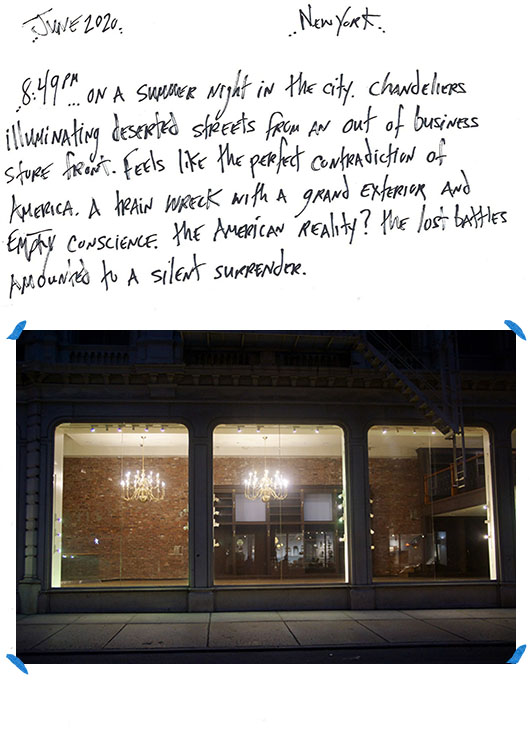 JUNE 2020. NEW YORK.
8:49 PM... ON A SUMMER NIGHT IN THE CITY. CHANDELIERS
ILLUMINATING DESERTED STREETS FROM AN OUT OF BUSINESS
STORE FRONT. FEELS LIKE THE PERFECT CONTRADICTION OF
AMERICA. A TRAIN WRECK WITH A GRAND EXTERIOR AND
EMPTY CONSCIENCE. THE AMERICAN REALITY? THE LOST BATTLES
AMOUNTED TO A SILENT SURRENDER.